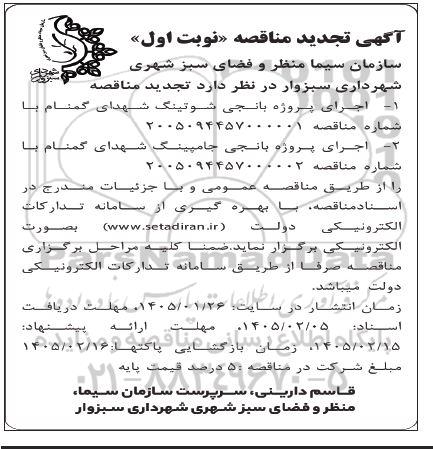 آگهی تجدید مناقصه «نوبت اول»
سازمان سیما منظر و فضای سبز شهری
شهرداری سبزوار در نظر دارد تجدید مناقصه
۱- اجرای پروژه بانجی شوتینگ شهدای گمنام با
شماره مناقصه ۲۰۰۵۰۹۴۴۵۷۰۰۰۰۰۱
۲- اجرای پروژه بانجی جامپینگ شهدای گمنام با
شماره مناقصه ۲۰۰۵۰۹۴۴۵۷۰۰۰۰۰۲
را از طریق مناقصه عمومی و با جزئیات مندرج در
اسنادمناقصه، با بهره گیری از سامانه تدارکات
الکترونیکی دولت (www.setadiran.ir) بصورت
الکترونیکی برگزار نماید.ضمنا کلیه مراحل برگزاری
مناقصه صرفا از طریق سامانه تدارکات الکترونیکی
دولت میباشد.
زمان انتشار در سایت: ۱۴۰۵/۰۱/۲۶. مهلت دریافت
اسناد: ۱۴۰۵/۰۲/۰۵. مهلت ارائه پیشنهاد:
۱۴۰۵/۰۲/۱۵. زمان بازگشایی پاکتها:۱۴۰۵/۰۲/۱۶
مبلغ شرکت در مناقصه :۵ درصد قیمت پایه
قاسم دارینی، سرپرست سازمان سیما،
منظر و فضای سبز شهری شهرداری سبزوار
ParsNamadData
پایگاه اطلاع رسانی مناقصه و مزایده
۰۲۱-۸۸۳۴۹۶۷۰-۵